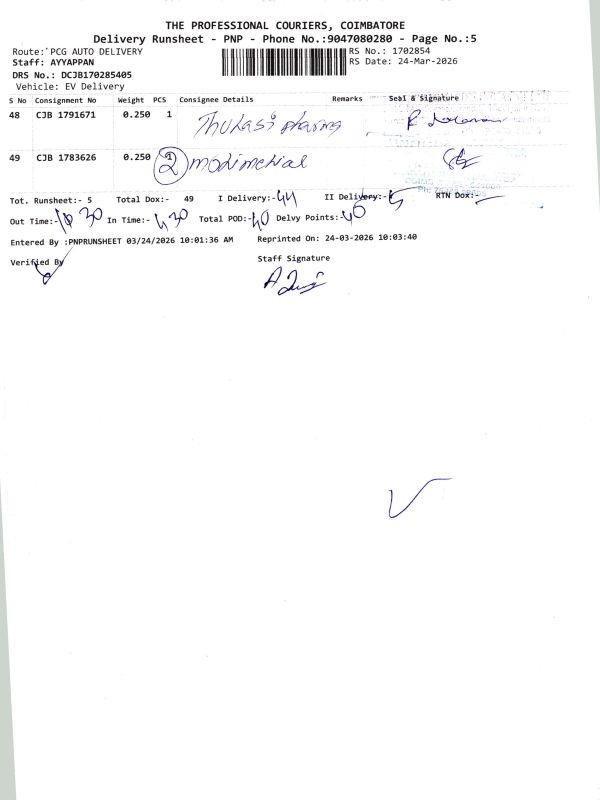 THE PROFESSIONAL COURIERS, COIMBATORE
Delivery Runsheet - PNP - Phone No.:9047080280 - Page No.:5
Route: PCG AUTO DELIVERY RS No.: 1702854
Staff: AYYAPPAN RS Date: 24-Mar-2026
DRS No.: DCJB170285405
Vehicle: EV Delivery
S No Consignment No Weight PCS Consignee Details Remarks Seal & Signature
48 CJB 1791671 0.250 1 Thulasi pharma
49 CJB 1783626 0.250 2
Tot. Runsheet:- 5 Total Dox:- 49 I Delivery:- 44 II Delivery:- 5 RTN Dox:-
Out Time:- 10 30 In Time:- 4 30 Total POD:- 40 Delvy Points:- 40
Entered By :PNPRUNSHEET 03/24/2026 10:01:36 AM Reprinted On: 24-03-2026 10:03:40
Verified By Staff Signature